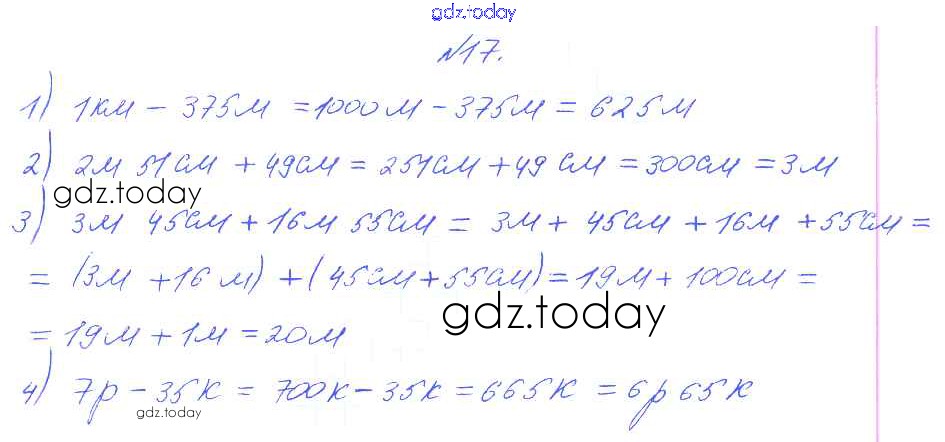 gdz.today
№17.
1) 1км - 375м = 1000м - 375м = 625м
2) 2м 51см + 49см = 251см + 49см = 300см = 3м
gdz.today
3) 3м 45см + 16м 55см = 3м + 45см + 16м + 55см =
= (3м + 16м) + (45см + 55см) = 19м + 100см =
gdz.today
= 19м + 1м = 20м
4) 7р - 35к = 700к - 35к = 665к = 6р 65к
gdz.today